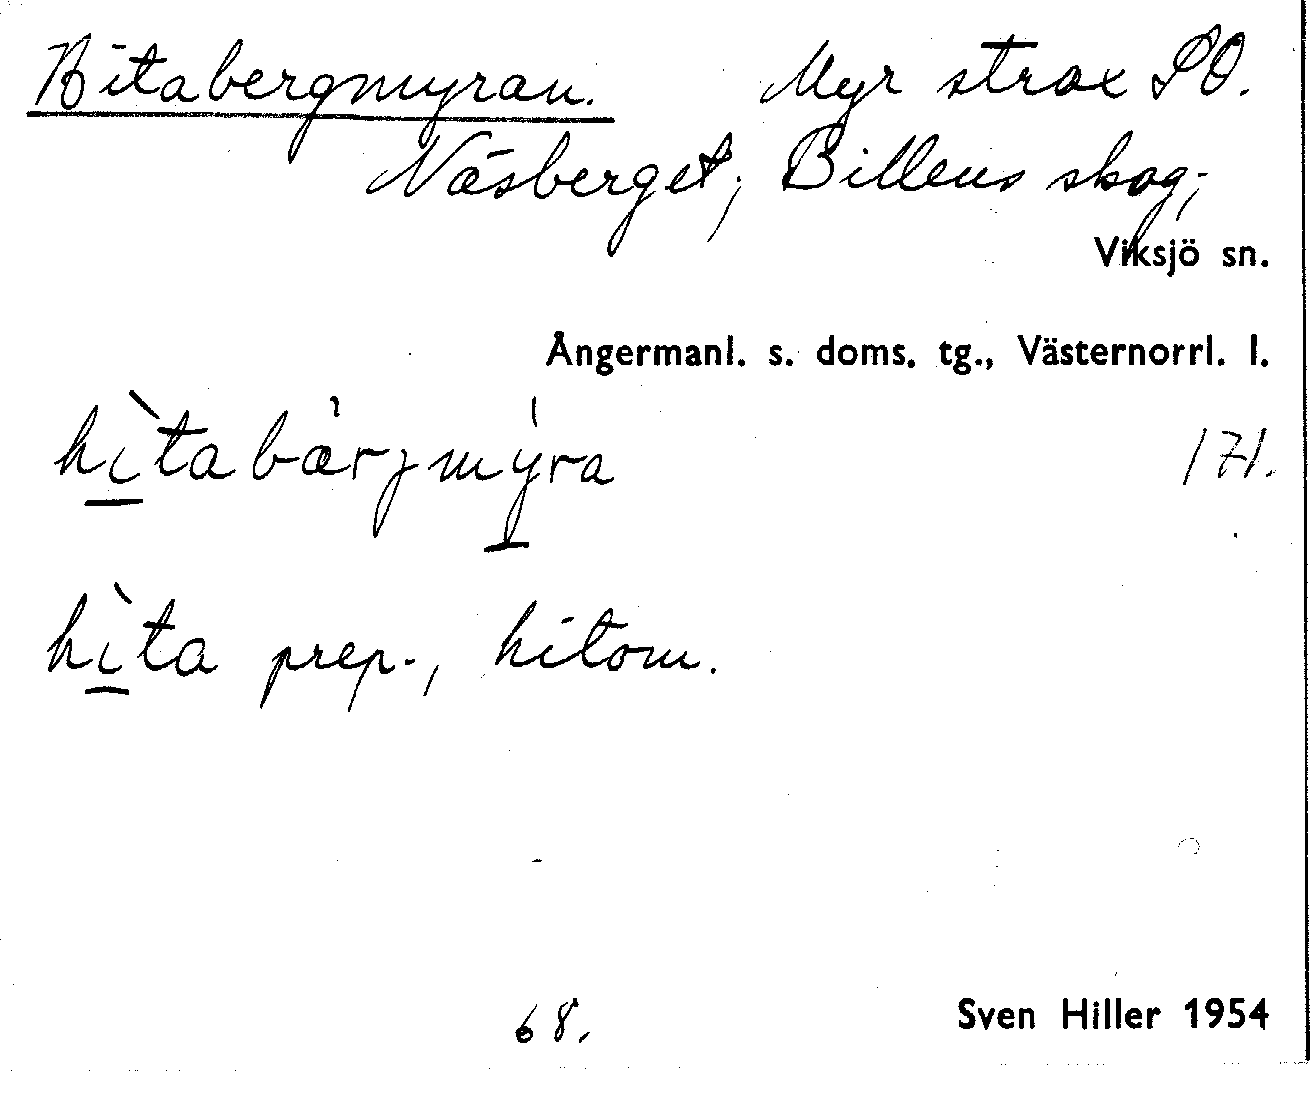 Hitabergmyran. Myr strax SO.
Näsberget, Billens skog;
Viksjö sn.
Ångermanl. s. doms. tg., Västernorrl. l.
hìtabærjmýra 171.
hìta prep., hitom.
68. Sven Hiller 1954